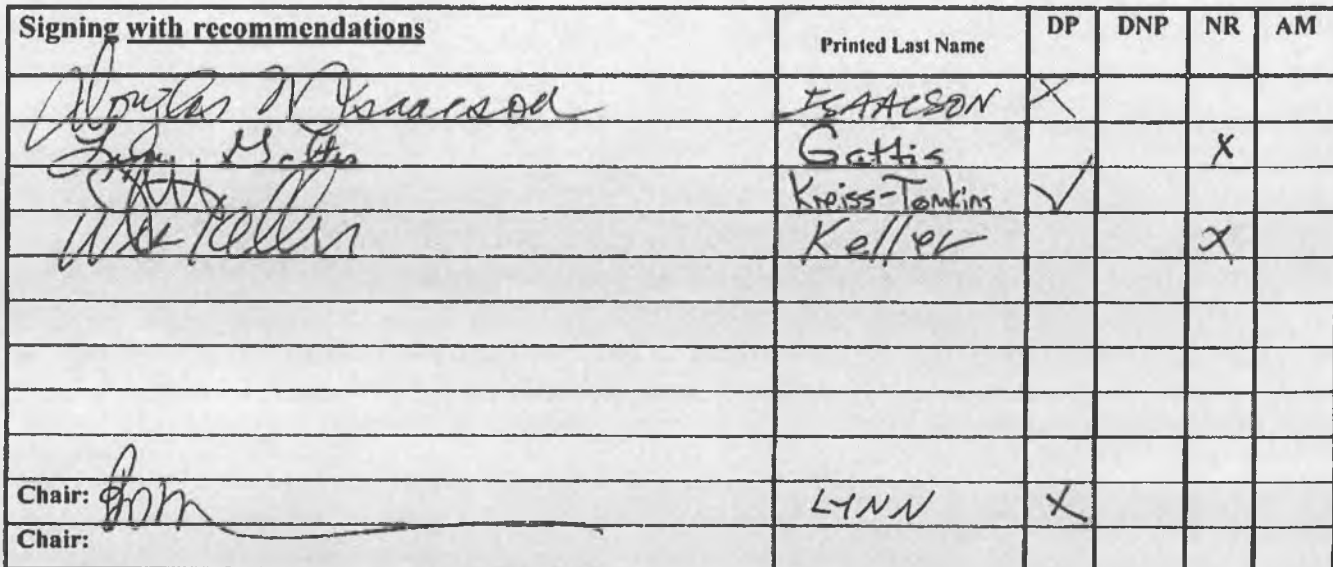 Signing with recommendations Printed Last Name DP DNP NR AM
Douglas Isaacson ISAACSON X
Gattis X
Kreiss-Tomkins ✓
Wes Keller Keller X
Chair: LYNN X
Chair: